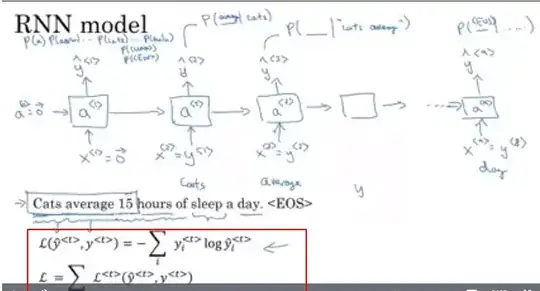 RNN model
P(a) P(aaron) ... P(cats) ... P(zulu)
P(<UNK>)
P(<EOS>)
P(average | cats)
P(__ | "cats average")
P(<EOS> | ....)
ŷ<1> ŷ<2> ŷ<3> ŷ<9>
a<0>=0⃗ a<1> a<2> a<3> a<9>
x<1>=0⃗ x<2>=y<1> x<3>=y<2> x<9>=y<8>
Cats average y day
→ Cats average 15 hours of sleep a day. <EOS>
ℒ(ŷ<t>, y<t>) = −∑ᵢ yᵢ<t> log ŷᵢ<t> ←
ℒ = ∑ ℒ<t>(ŷ<t>, y<t>)